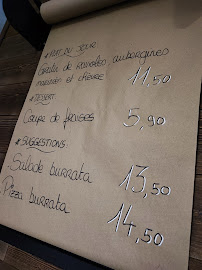 * PLAT DU JOUR
Gratin de ravioles aubergines
marinées et chèvre 11,50
* DESSERT
Coupe de fraises 5,90
* SUGGESTIONS
Salade burrata 13,50
Pizza burrata 14,50